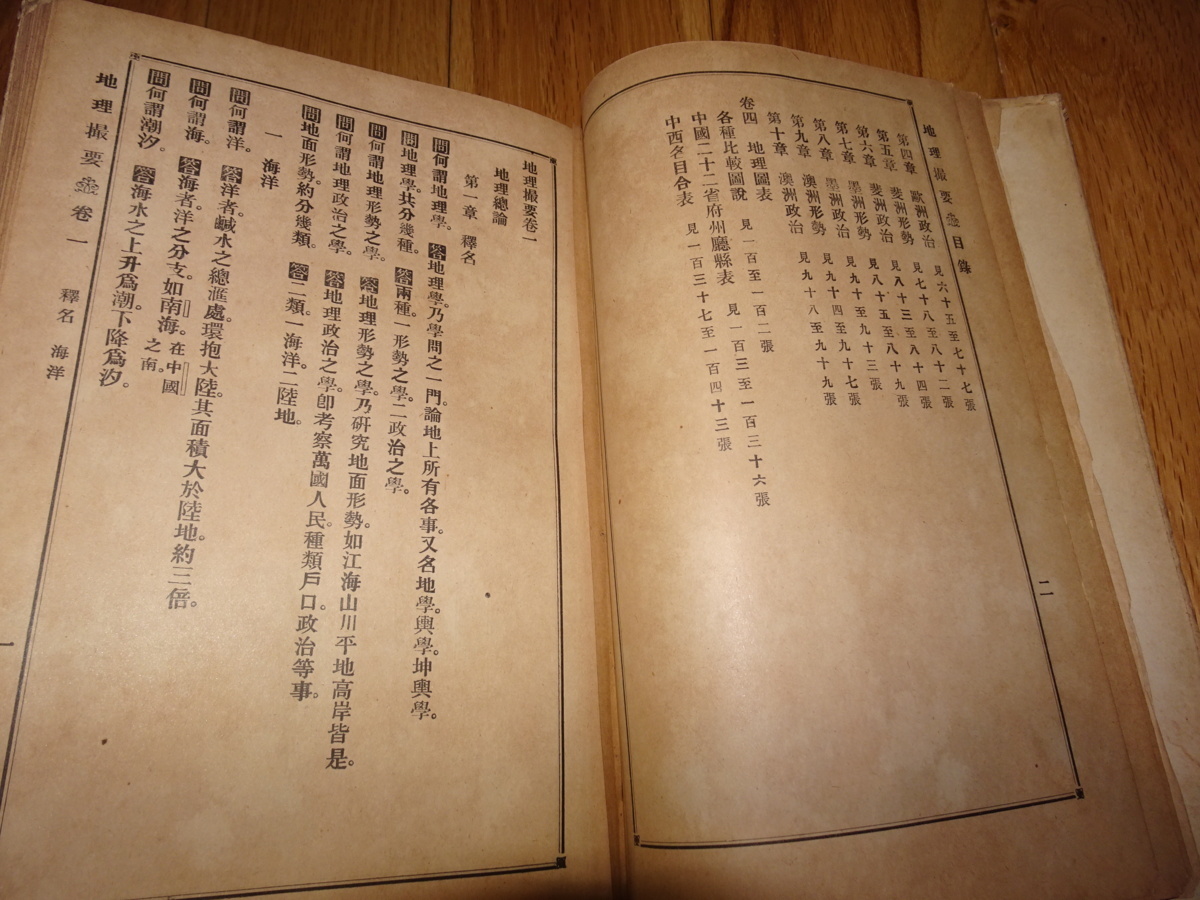 地理撮要 目錄
第四章 歐洲政治 見六十五至七十七張
第五章 斐洲形勢 見七十八至八十二張
第六章 斐洲政治 見八十三至八十四張
第七章 墨洲形勢 見八十五至八十九張
第八章 墨洲政治 見九十至九十三張
第九章 澳洲形勢 見九十四至九十七張
第十章 澳洲政治 見九十八至九十九張
卷四 地理圖表
各種比較圖說 見一百至一百二張
中國二十二省府州廳縣表 見一百三至一百三十六張
中西名目合表 見一百三十七至一百四十三張
二
地理撮要卷一
地理總論
第一章 釋名
問何謂地理學。答地理學。乃學問之一門。論地上所有各事。又名地學。輿學。坤輿學。
問地理學。共分幾種。答兩種。一形勢之學。二政治之學。
問何謂地理形勢之學。答地理形勢之學。乃研究地面形勢。如江海山川平地高岸皆是。
問何謂地理政治之學。答地理政治之學。卽考察萬國人民。種類戶口。政治等事。
問地面形勢。約分幾類。答二類。一海洋。二陸地。
一 海洋
問何謂洋。答洋者。鹹水之總滙處。環抱大陸。其面積大於陸地。約三倍。
問何謂海。答海者。洋之分支。如南海。在中國之南。
問何謂潮汐。答海水之上升爲潮。下降爲汐。
地理撮要 卷一 釋名 海洋
一